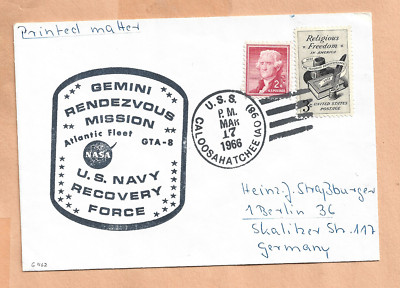 Printed matter
GEMINI
RENDEZVOUS
MISSION
Atlantic Fleet GTA-8
NASA
U.S. NAVY
RECOVERY
FORCE
2¢
JEFFERSON
Religious
Freedom
IN AMERICA
3¢ UNITED STATES
POSTAGE
U.S.S. CALOOSAHATCHEE (AO 98)
P.M.
MAR
17
1966
Heinz J. Straßburger
1 Berlin 36
Skalitzer Str. 117
Germany